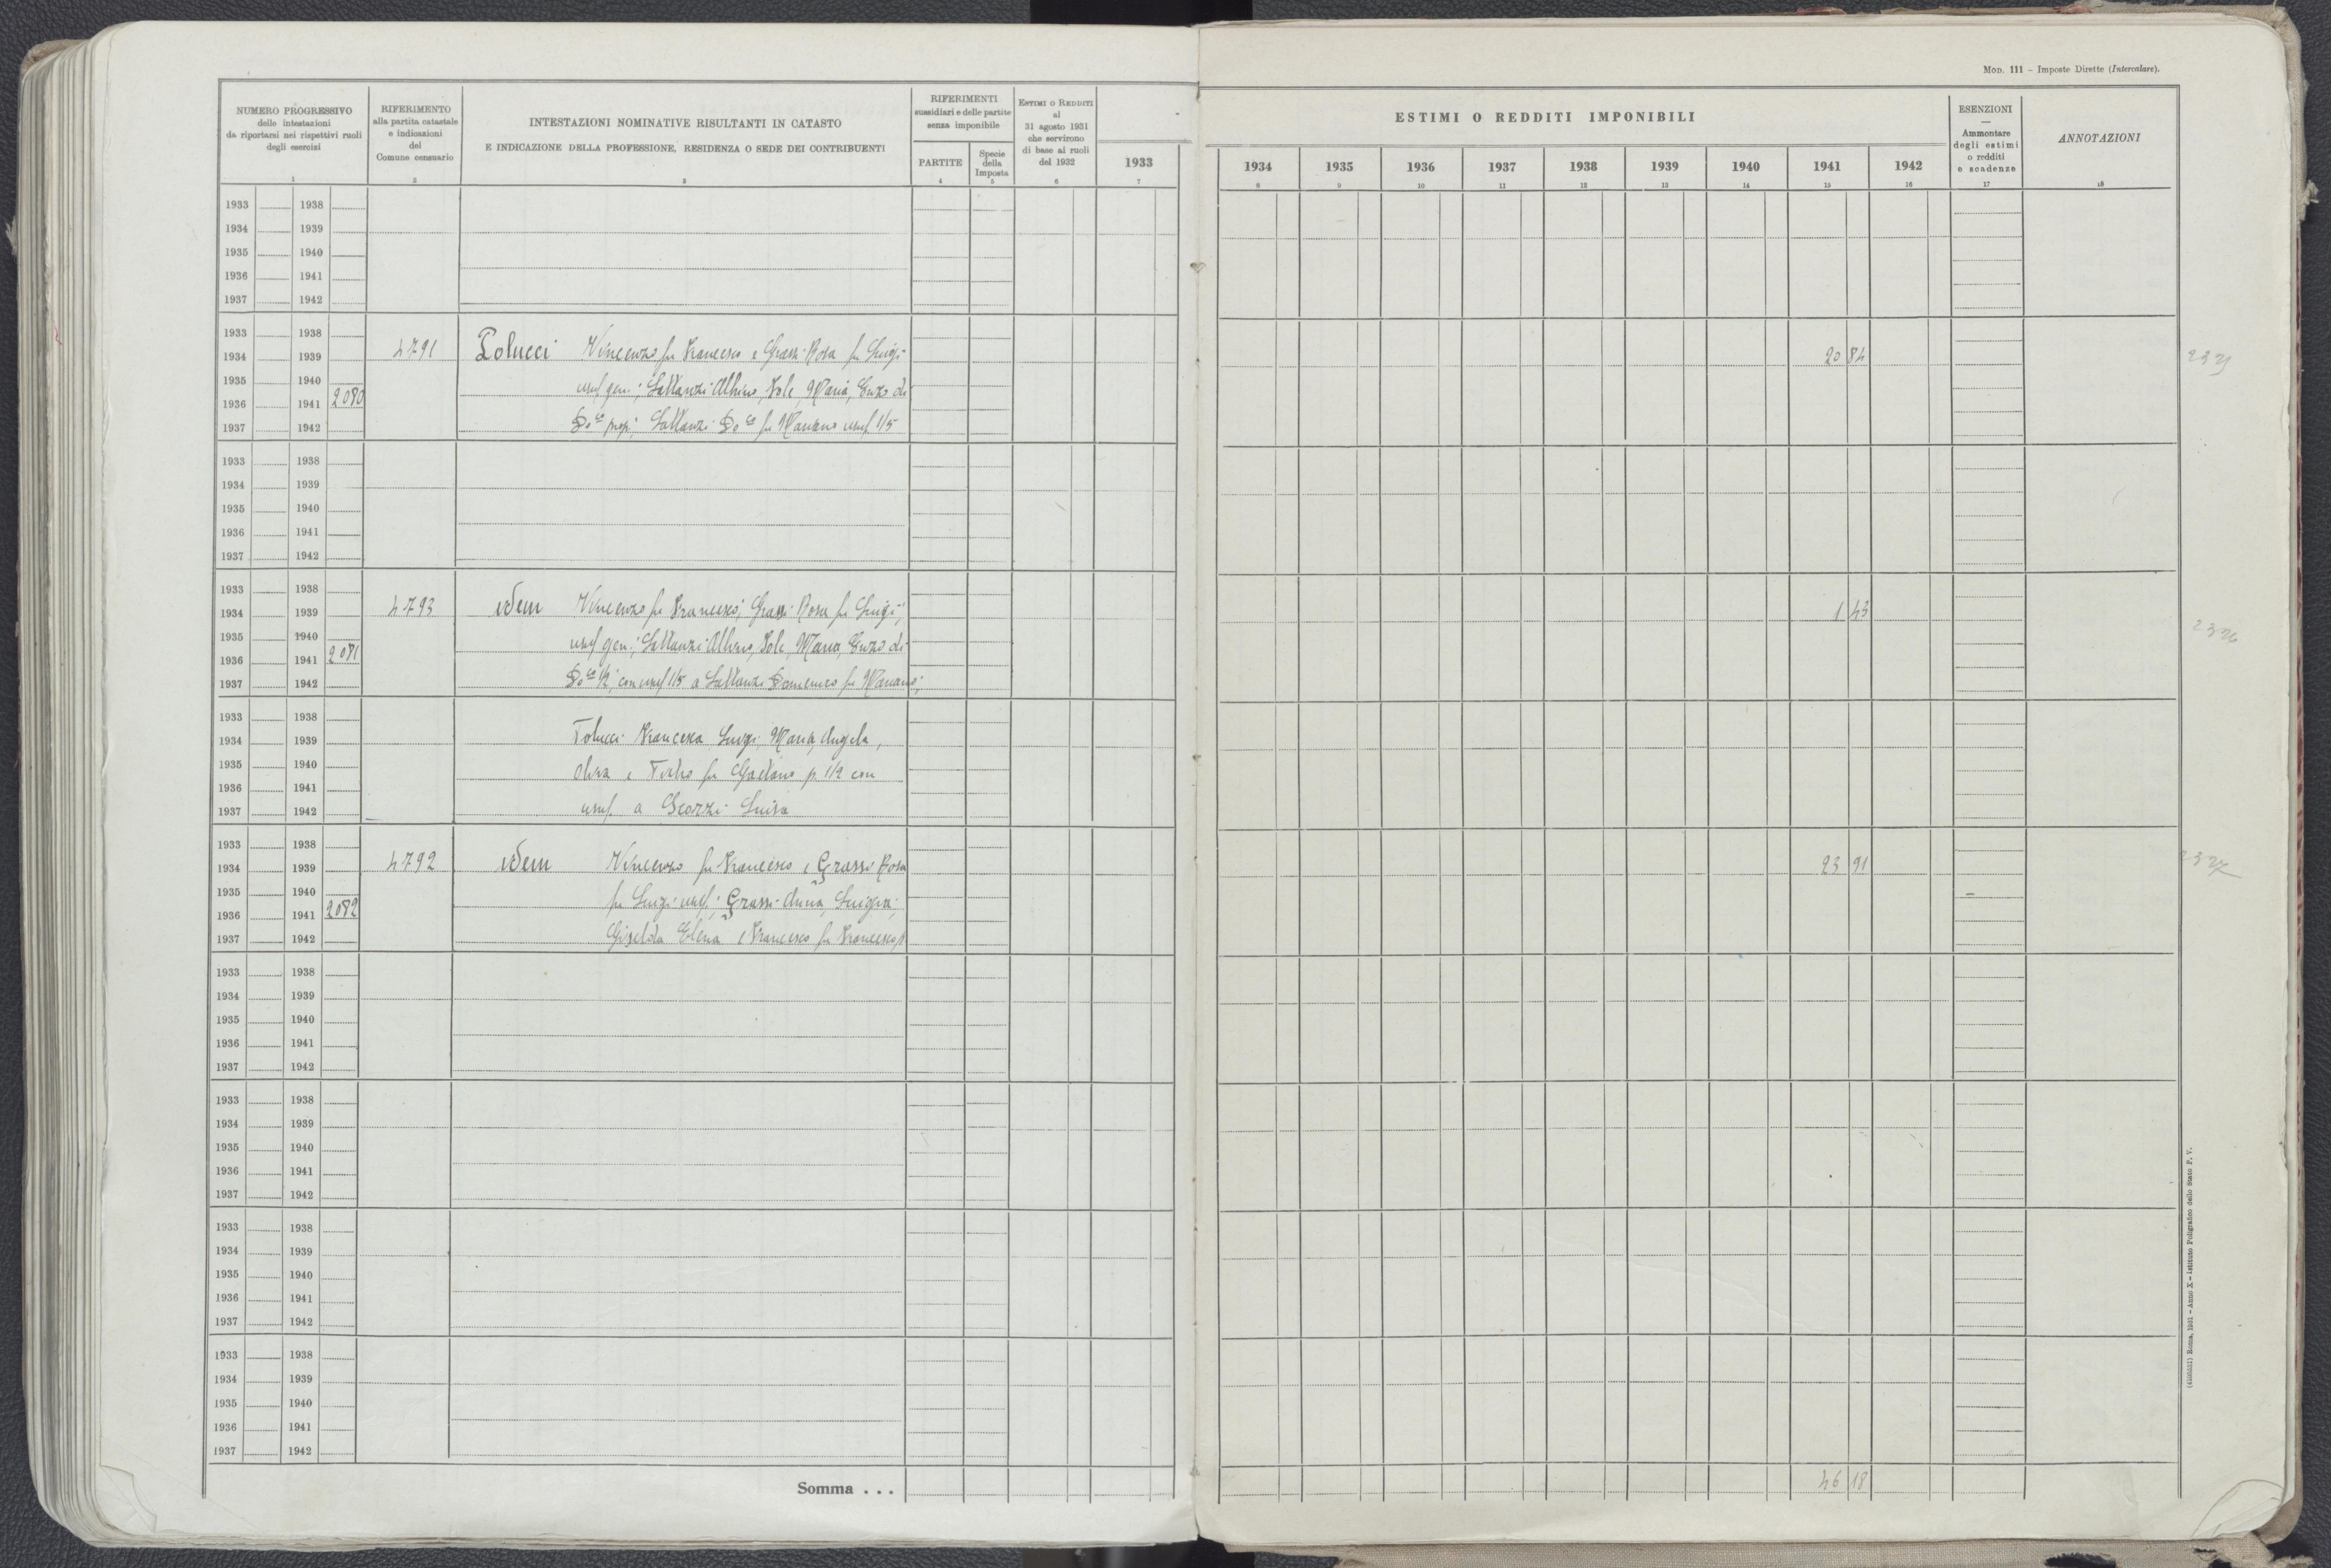 Mod. 111 – Imposte Dirette (Intercalare).
NUMERO PROGRESSIVO
delle intestazioni
da riportarsi nei rispettivi ruoli
degli esercizi
1
RIFERIMENTO
alla partita catastale
e indicazioni
del
Comune censuario
2
INTESTAZIONI NOMINATIVE RISULTANTI IN CATASTO
E INDICAZIONE DELLA PROFESSIONE, RESIDENZA O SEDE DEI CONTRIBUENTI
3
RIFERIMENTI
sussidiari e delle partite
senza imponibile
PARTITE
4
Specie
della
Imposta
5
ESTIMI O REDDITI
al
31 agosto 1931
che servirono
di base ai ruoli
del 1932
6
1933
7
ESTIMI O REDDITI IMPONIBILI
1934 1935 1936 1937 1938 1939 1940 1941 1942
8 9 10 11 12 13 14 15 16
ESENZIONI
—
Ammontare
degli estimi
o redditi
e scadenze
17
ANNOTAZIONI
18
1933 1938
1934 1939
1935 1940
1936 1941
1937 1942
1933 1938
1934 1939 4791 Polucci Vincenzo fu Francesco e Grassi Rosa fu Luigi 20 84
1935 1940 usuf gen.; Lattanzi Albino, Iole, Maria, Enzo di
1936 1941 2080
1937 1942 Do.co prop; Lattanzi Do.co fu Mariano usuf 1/5
1933 1938
1934 1939
1935 1940
1936 1941
1937 1942
1933 1938
1934 1939 4793 idem Vincenzo fu Francesco; Grassi Rosa fu Luigi; 1 43
1935 1940 usuf gen.; Lattanzi Albino, Iole, Maria, Enzo di
1936 1941 2081
1937 1942 Do.co 1/2, con usuf 1/5 a Lattanzi Domenico fu Mariano;
1933 1938
1934 1939 Polucci Francesca, Luigi, Maria, Angela,
1935 1940 fu Gaetano p. 1/2 con
1936 1941
1937 1942 usuf. a Luisa
1933 1938
1934 1939 4792 idem Vincenzo fu Francesco e Grassi Rosa 23 91
1935 1940
1936 1941 2082 fu Luigi usuf.; Grassi Anna, Luigia,
1937 1942 Giselda Elena e Francesco fu Francesco p
1933 1938
1934 1939
1935 1940
1936 1941
1937 1942
1933 1938
1934 1939
1935 1940
1936 1941
1937 1942
1933 1938
1934 1939
1935 1940
1936 1941
1937 1942
1933 1938
1934 1939
1935 1940
1936 1941
1937 1942
Somma . . . 46 18
Roma, 1931 – Anno X – Istituto Poligrafico dello Stato P. V.